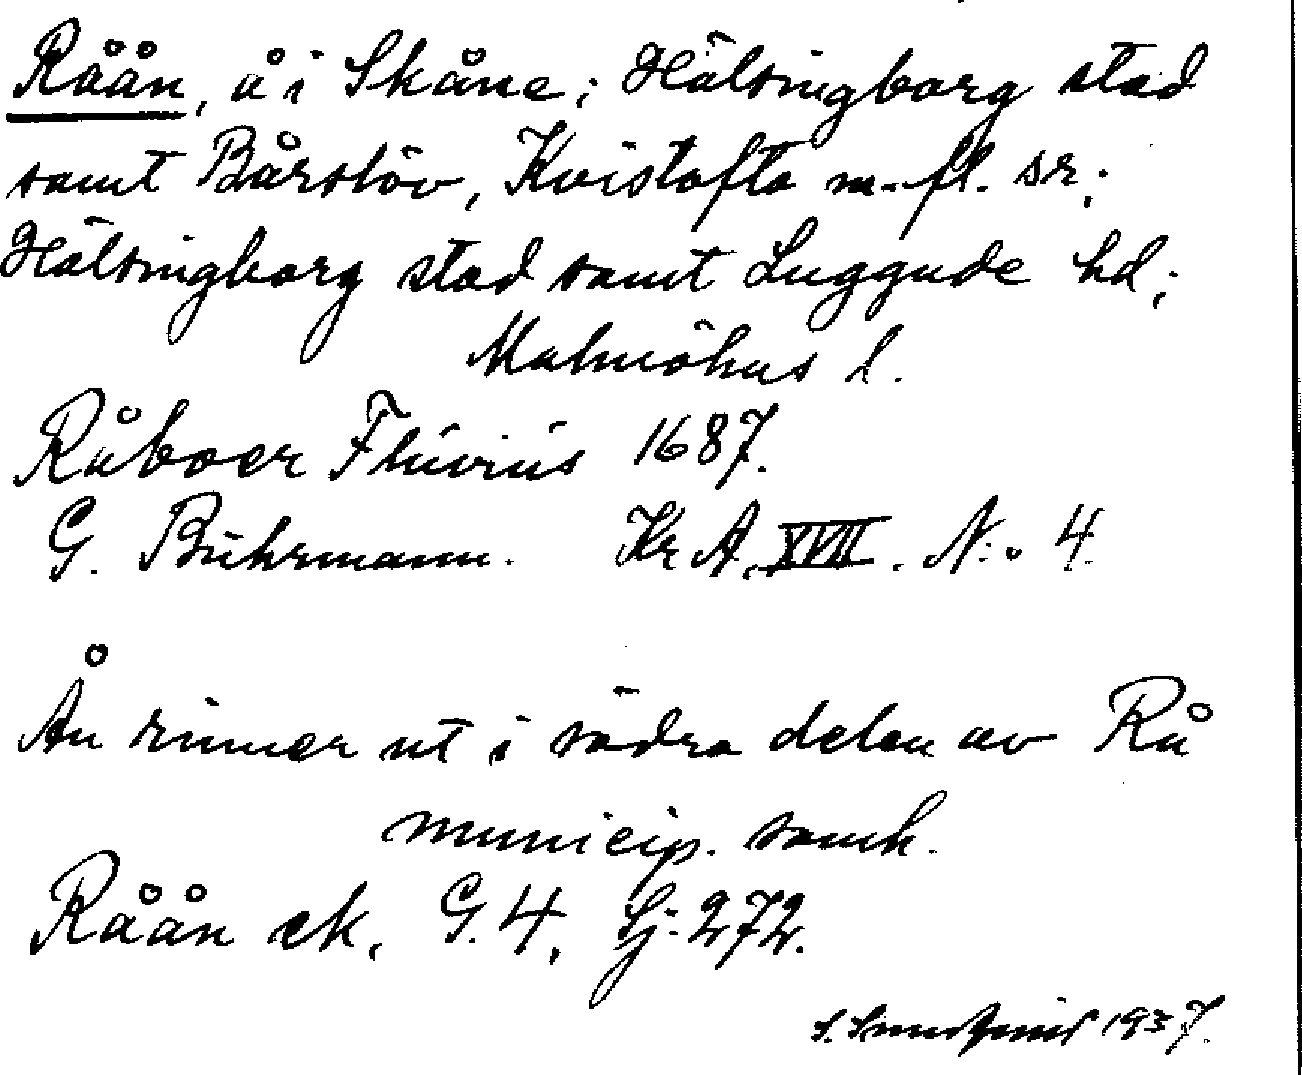 Råån, å i Skåne; Hälsingborg stad
samt Bårslöv, Kvistofta m. fl. sr;
Hälsingborg stad samt Luggude hd;
Malmöhus l.
Råboer Flúviús 1687.
G. Buhrmann. Kr A. XVII. N:o 4.
Ån rinner ut i södra delen av Rå
municip. samh.
Råån ek. G. 4. Sj. 272.
1937.